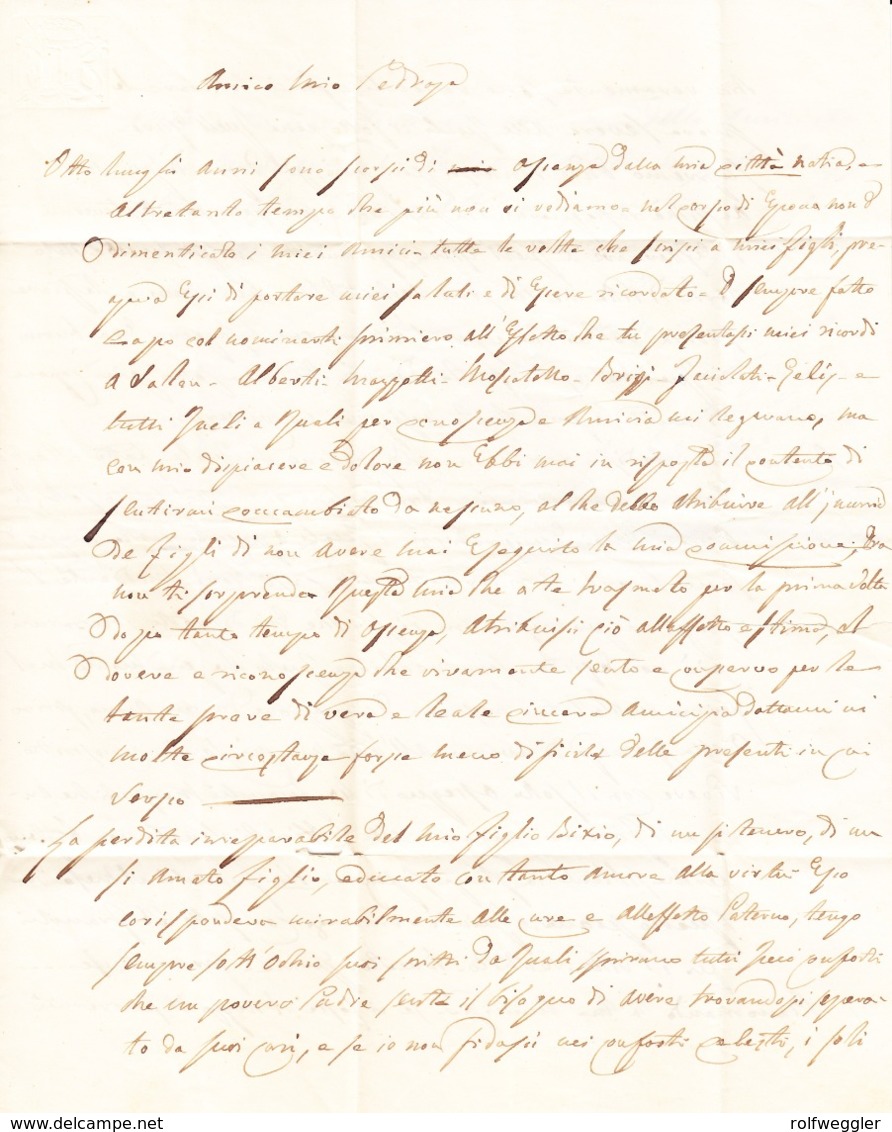 Amico mio Pedroja
Otto lunghi anni sono scorsi di asenza dalla mia città natia, e
altretanto tempo che più non ci vediamo nel corso di Epoca non ò
dimenticato i miei Amici tutte le volte che scrissi a miei figli, pre-
gava Essi di portare miei saluti e di Essere ricordato ò sempre fatto
capo col nominarti primiero all'Effetto che tu presentasi miei ricordi
a Alberti Mazzotti Moscatello Brizzi e
tutti queli a quali per conoscenza e Amicizia mi legavano, ma
con mio dispiacere e dolore non Ebbi mai in risposta il contento di
sentirmi contracambiato da nesuno, al che debbo atribuire all'
De figli di non avere mai Eseguito la mia commissione, Ora
non ti sorprenda questa mia che a te trasmeto per la prima volta
dopo tanto tempo di asenza, atribuisci ciò all'affetto e stima, al
dovere e riconoscenza che vivamente sento e conservo per le
tante prove di vera e leale sincera amicizia dattami in
molte circostanze forse meno dificile delle presenti in cui
verso
La perdita irreparabile del mio figlio Bixio, di un si tenero, di un
si Amato figlio, educato con tanto amore alla virtù Esso
corispondeva mirabilmente alle cure e all'affetto Paterno, tengo
sempre sott'ochio suoi scritti da quali spirano tutti queli conforti
che un povero Padre sente il bisogno di avere trovandosi separa-
to da suoi cari, e se io non fidassi nei conforti celesti, i soli
rolfweggler